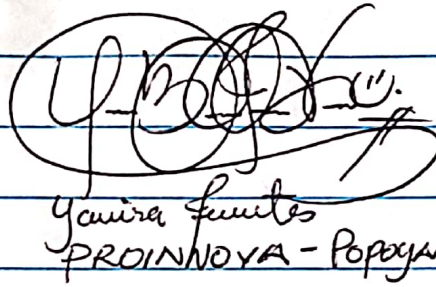 Yamira Fuentes
PROINNOVA - POPOYAN